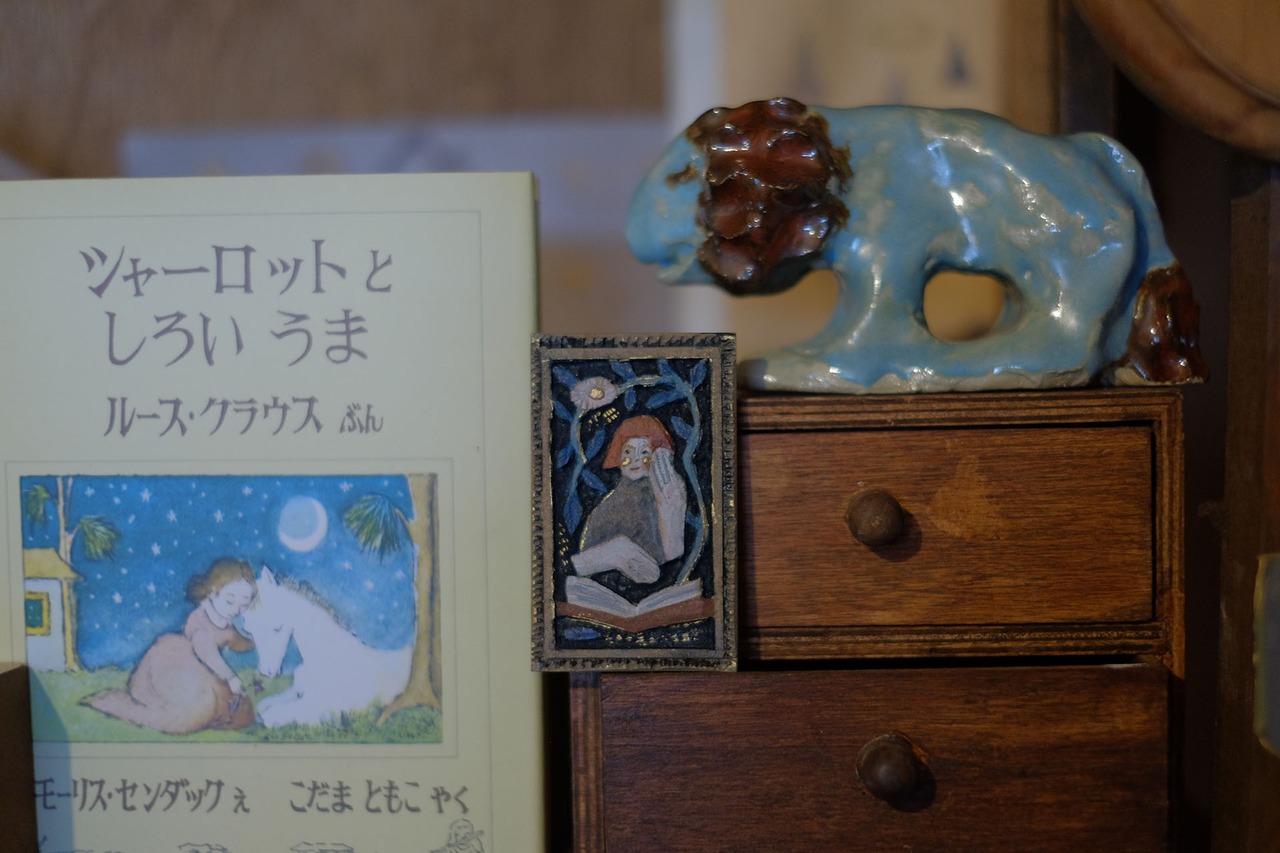 シャーロット と
しろい うま
ルース・クラウス ぶん
モーリス・センダック え　こだま ともこ やく